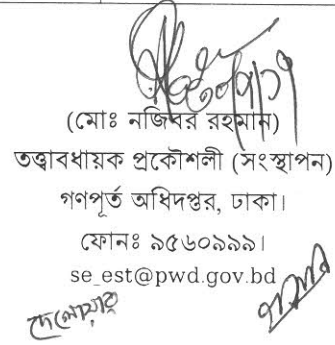 (মোঃ নজিবর রহমান)
তত্ত্বাবধায়ক প্রকৌশলী (সংস্থাপন)
গণপূর্ত অধিদপ্তর, ঢাকা।
ফোনঃ ৯৫৬০৯৯৯।
se_est@pwd.gov.bd
দেলোয়ার